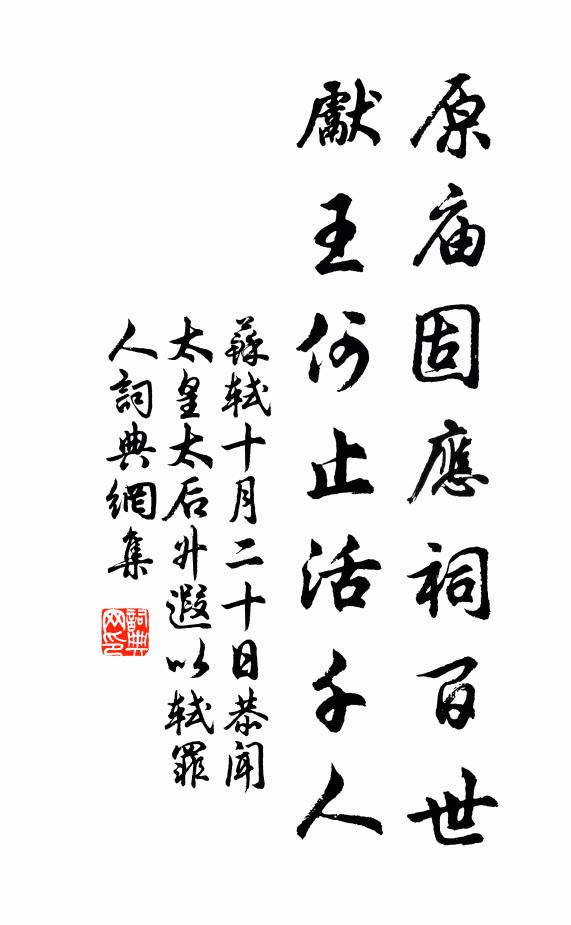 原庙固應祠百世
獻王何止活千人
蘇軾十月二十日恭聞
太皇太后升遐以軾罪
人詞典網集
詞典
网印